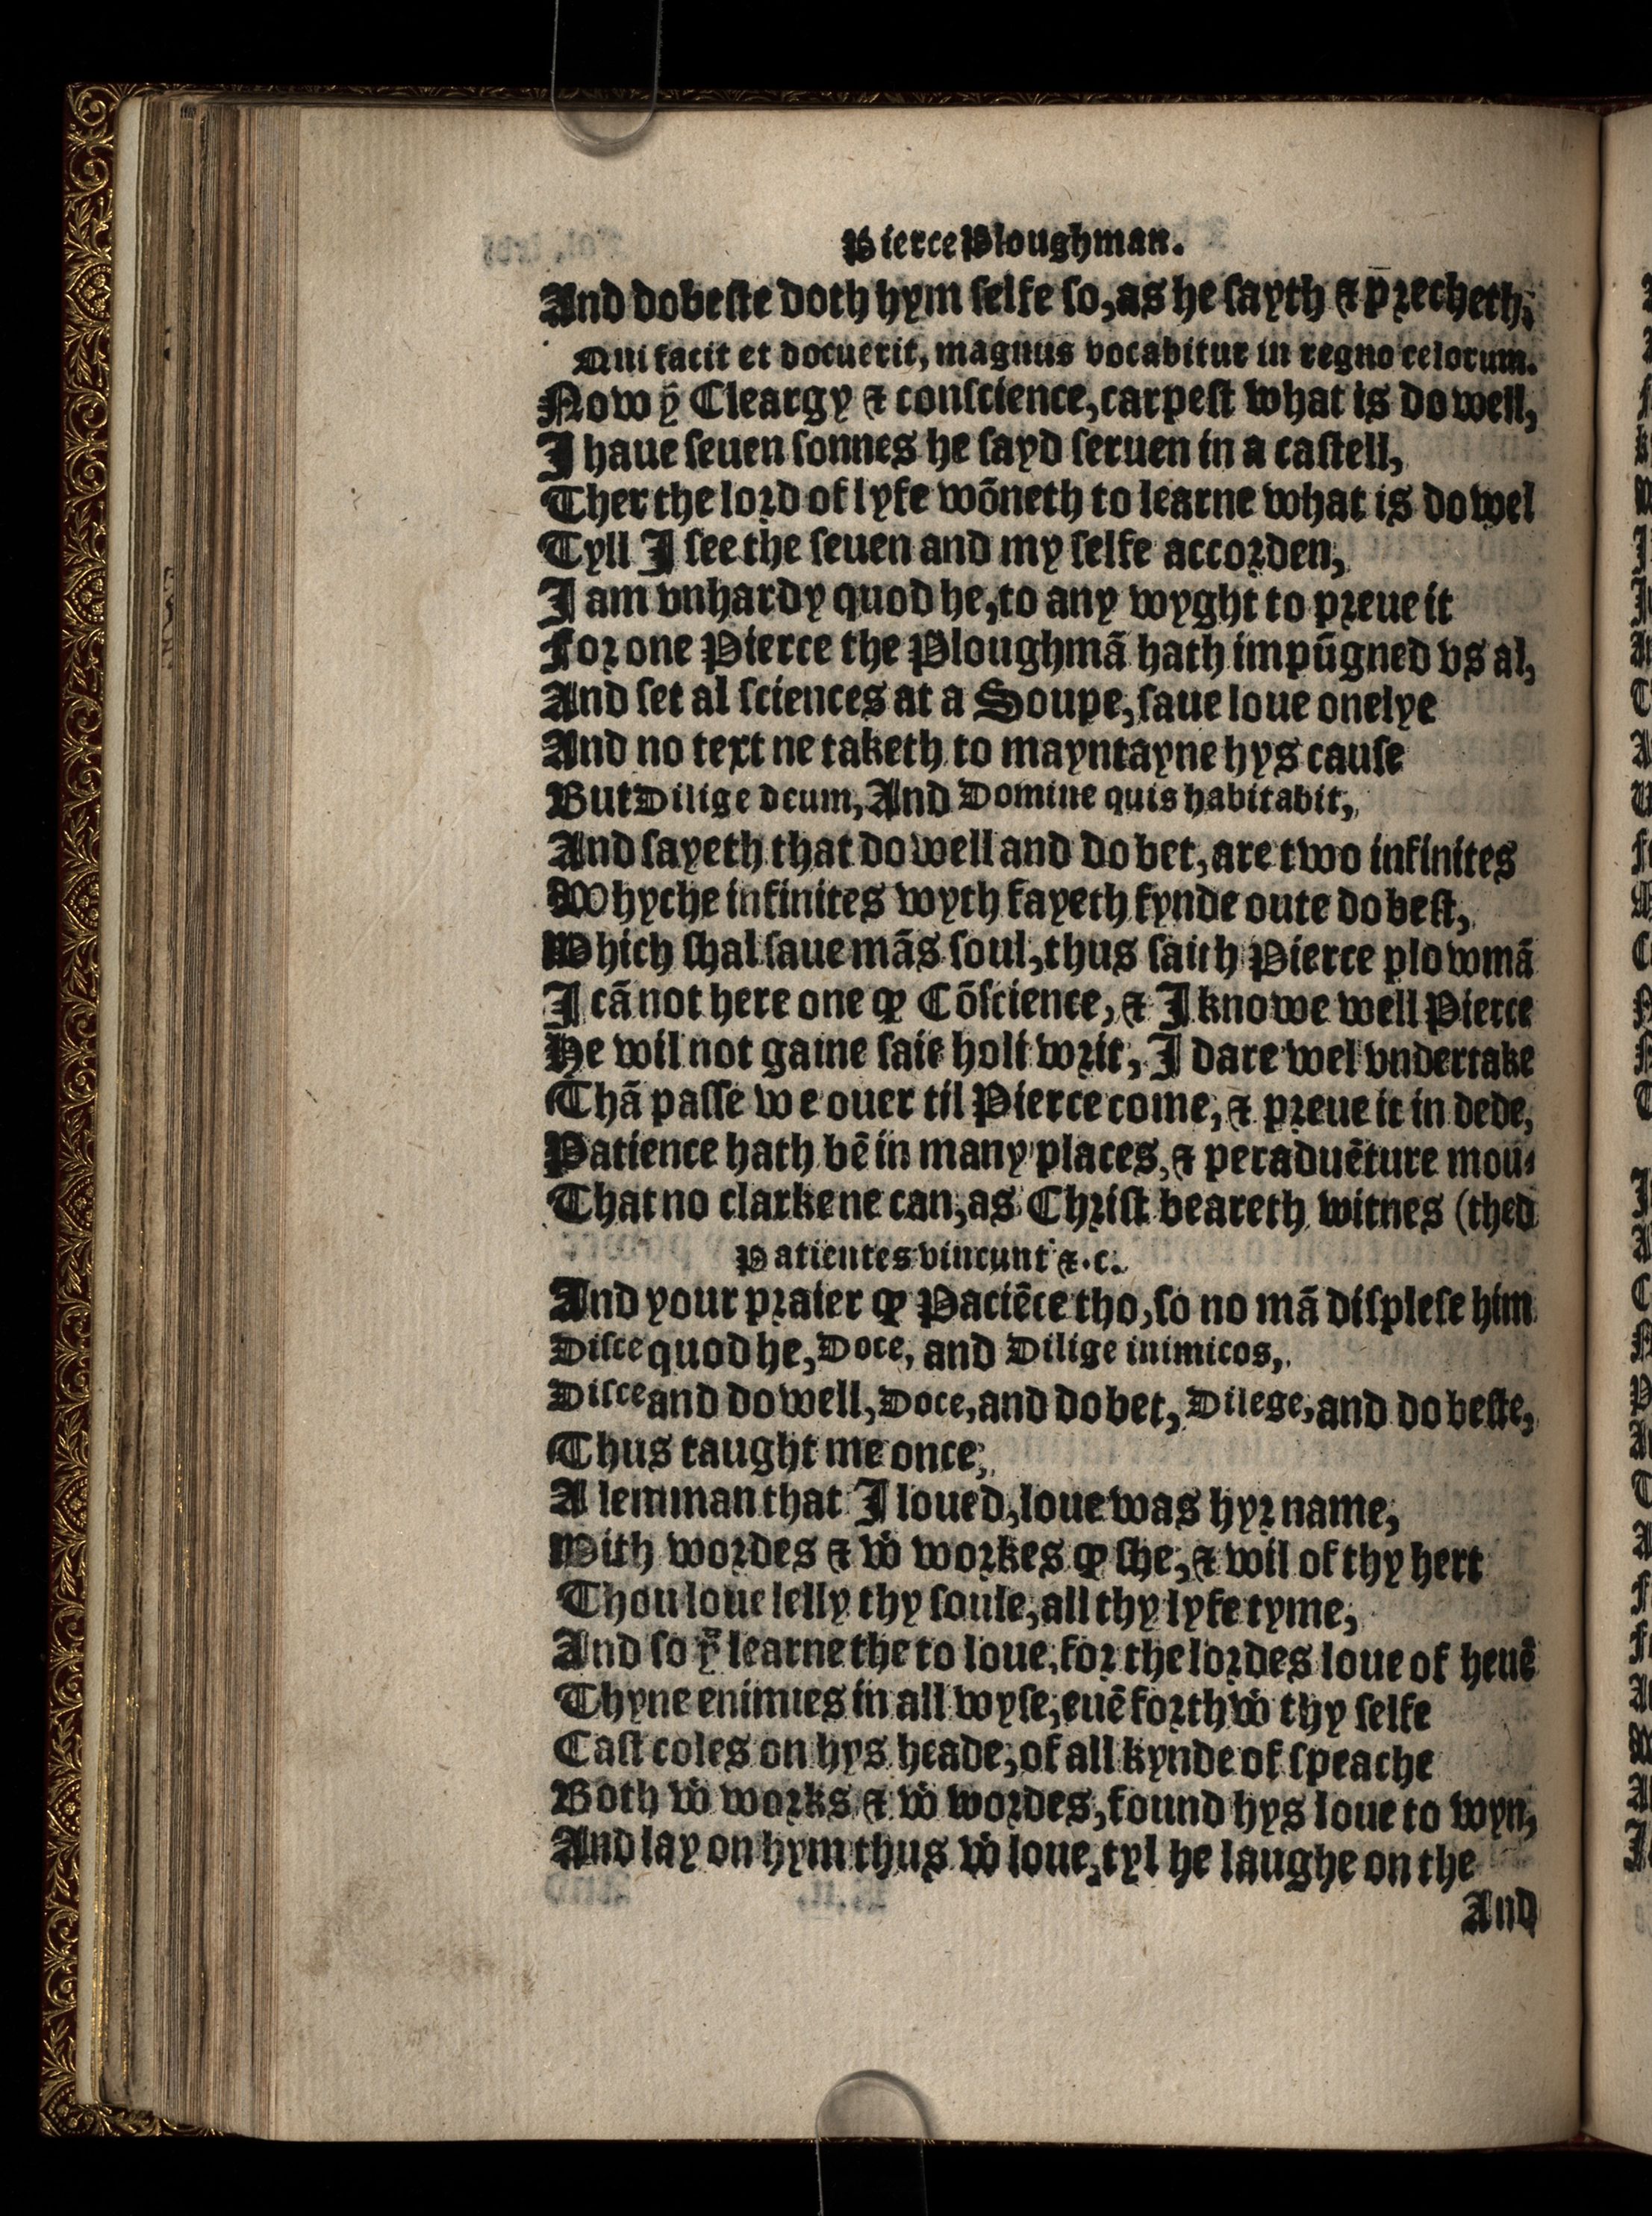 Pierce Ploughman.
And dobeste doth hym selfe so, as he sayth & p̄recheth,
Qui facit et docuerit, magnus vocabitur in regno celorum.
Now ȳ Cleargy & conscience, carpest what is do well,
I haue seuen sonnes he sayd seruen in a castell,
Ther the lord of lyfe wōneth to learne what is do wel
Tyll I see the seuen and my selfe accorden,
I am vnhardy quod he, to any wyght to preue it
For one Pierce the Ploughmā hath impūgned vs al,
And set al sciences at a Soupe, saue loue onelye
And no text ne taketh to mayntayne hys cause
But Dilige deum, And Domine quis habitabit,
And sayeth that do well and do bet, are two infinites
Whyche infinites wyth fayeth fynde oute do best,
Which shal saue mās soul, thus saith Pierce plowmā
I cā not here one ꝙ Cōscience, & I knowe well Pierce
He wil not gaine saie holi writ, I dare wel vndertake
Thā passe we ouer til Pierce come, & preue it in dede,
Patience hath bē in many places, & peraduēture mou-
That no clarke ne can, as Christ beareth witnes (thed
Patientes vincunt &.c.
And your praier ꝙ Paciēce tho, so no mā displese him
Disce quod he, Doce, and Dilige inimicos,
Disce and do well, Doce, and do bet, Dilege, and do beste,
Thus taught me once,
A lemman that I loued, loue was hyr name,
With wordes & wͭ workes ꝙ she, & wil of thy hert
Thou loue lelly thy soule, all thy lyfe tyme,
And so yͧ learne the to loue, for the lordes loue of heuē
Thyne enimies in all wyse, euē forth wͭ thy selfe
Cast coles on hys heade, of all kynde of speache
Both wͭ works & wͭ wordes, found hys loue to wyn,
And lay on hym thus wͭ loue, tyl he laughe on the
And